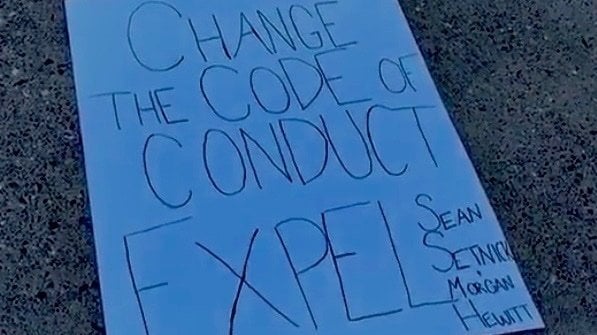 CHANGE
THE CODE OF
CONDUCT
EXPEL
SEAN
SETNICK
MORGAN
HEWITT